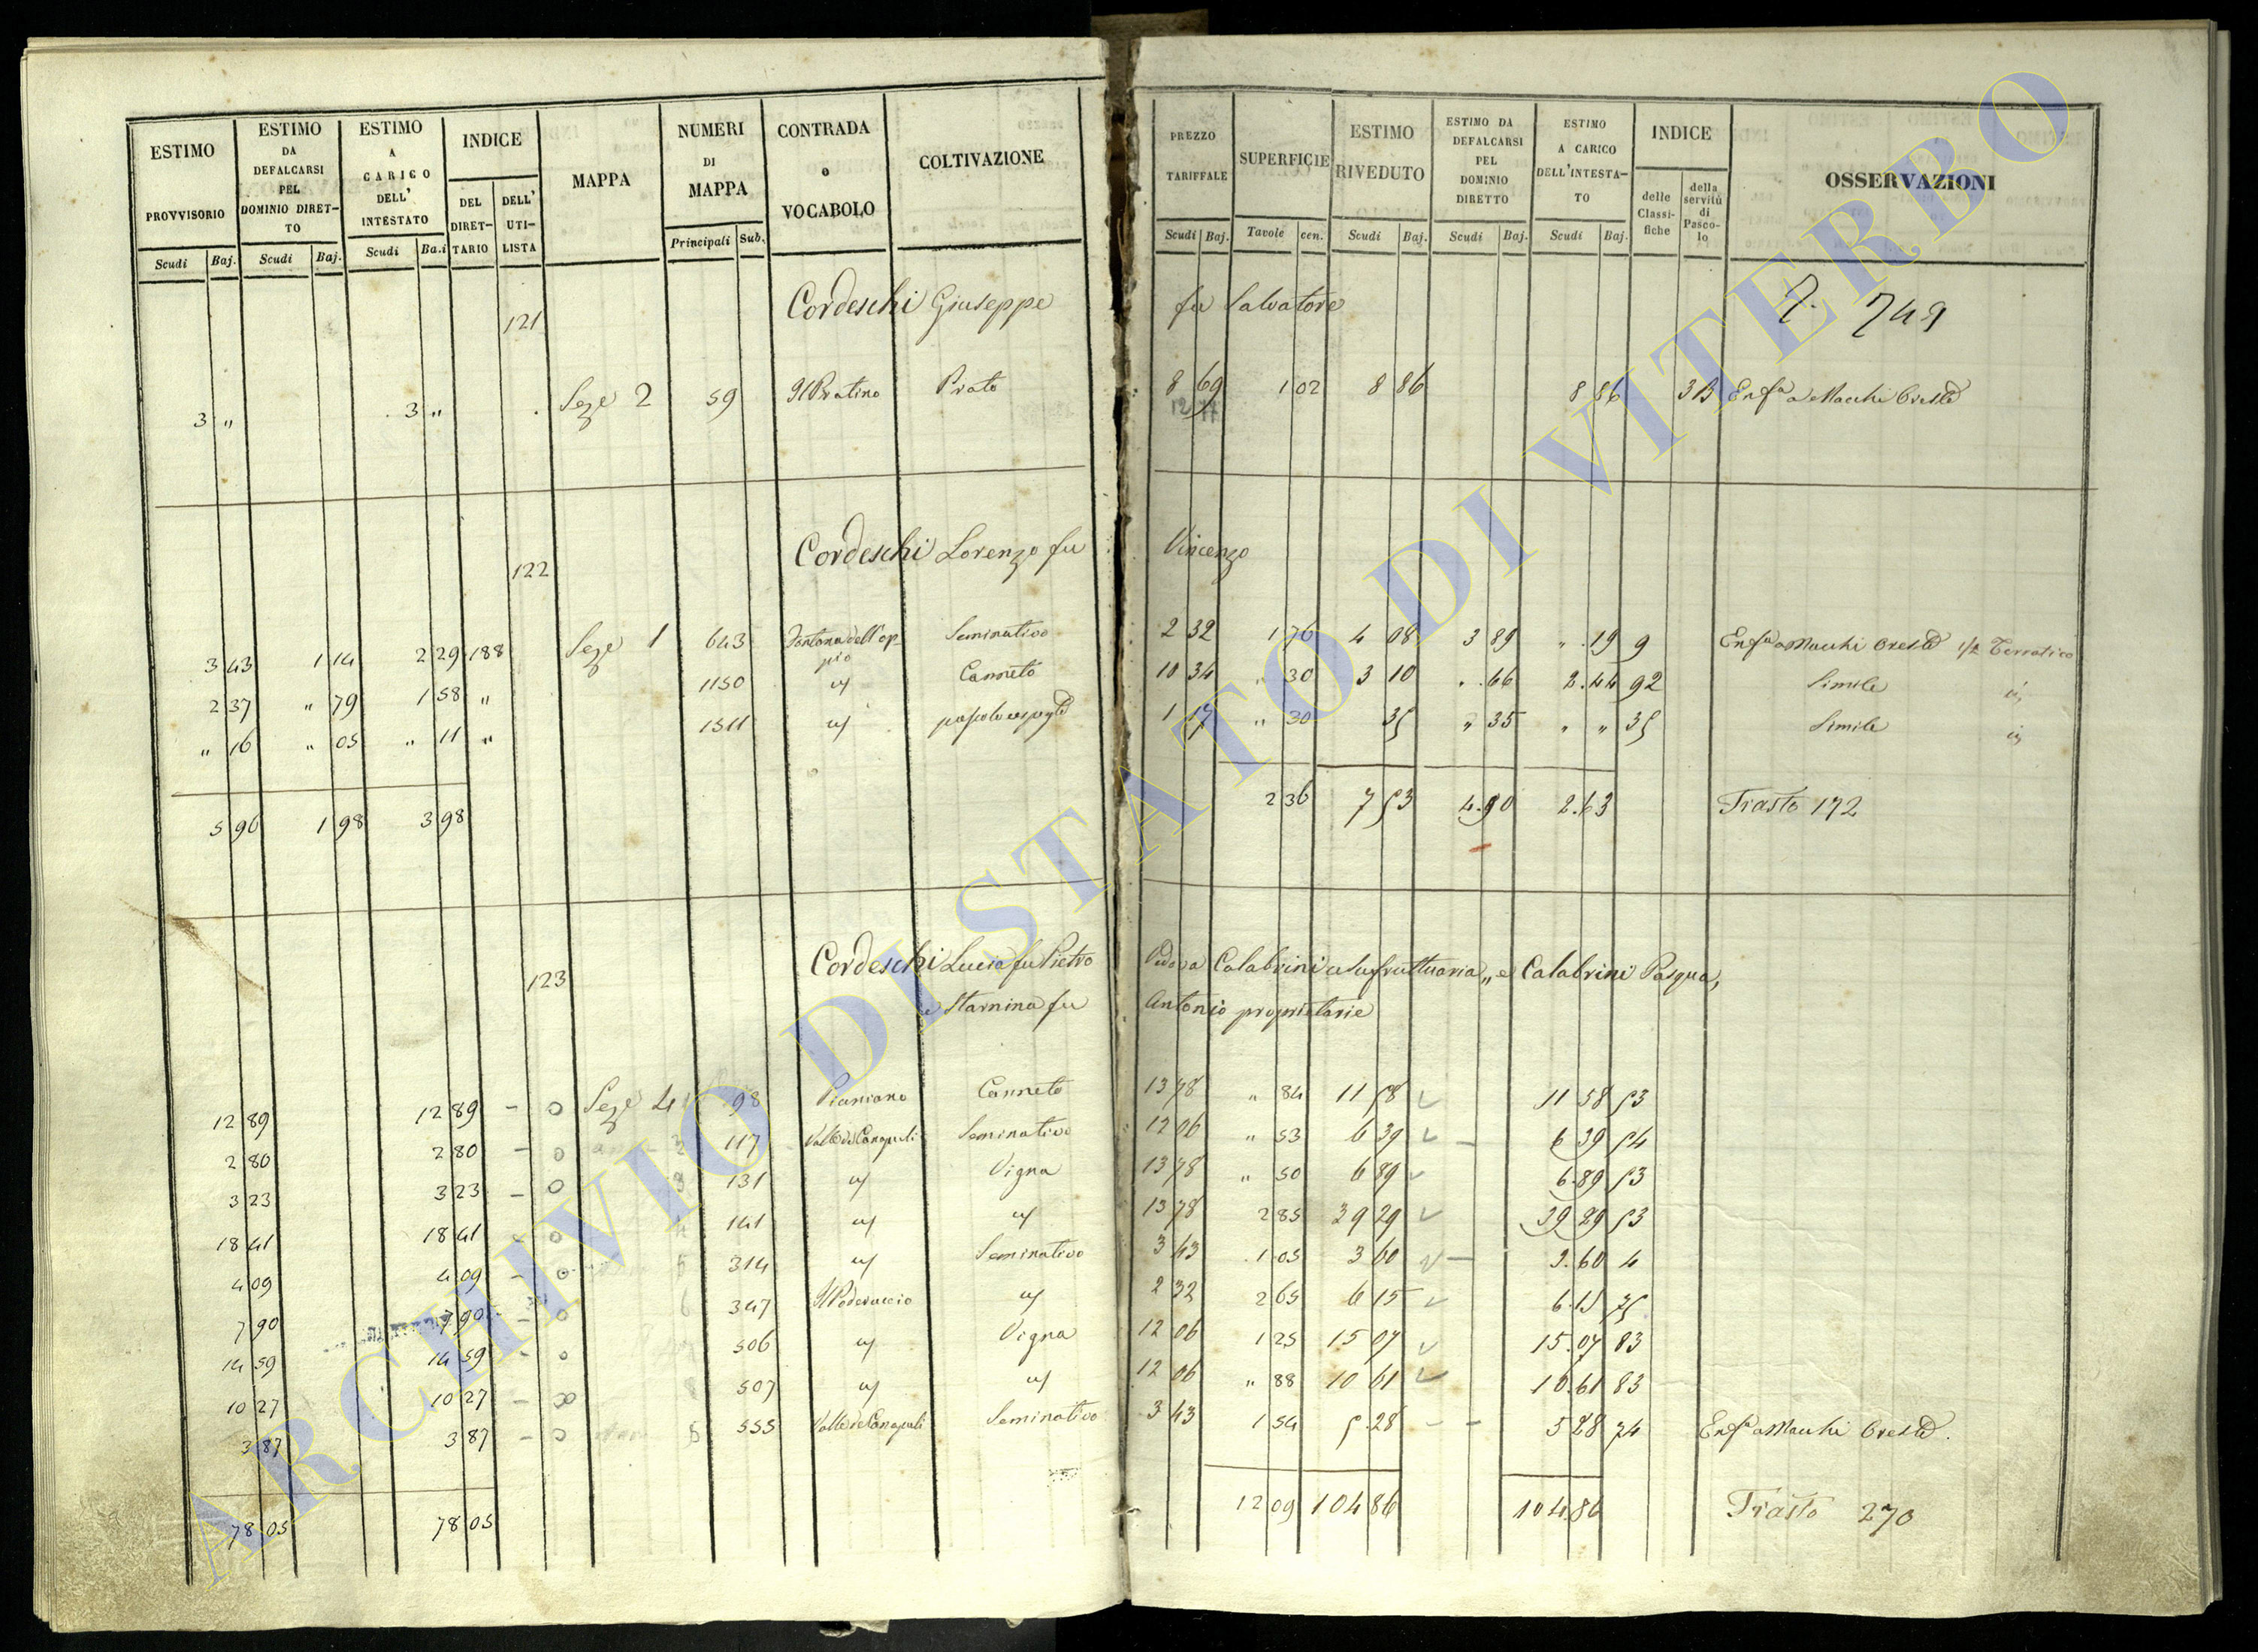 ESTIMO PROVVISORIO
ESTIMO DA DEFALCARSI PEL DOMINIO DIRET-TO
ESTIMO A CARICO DELL' INTESTATO
INDICE
DEL DIRET-TARIO
DELL' UTI-LISTA
MAPPA
NUMERI DI MAPPA
CONTRADA o VOCABOLO
COLTIVAZIONE
PREZZO TARIFFALE
SUPERFICIE
ESTIMO RIVEDUTO
ESTIMO DA DEFALCARSI PEL DOMINIO DIRETTO
ESTIMO A CARICO DELL'INTESTA-TO
INDICE
delle Classi-fiche
della servitù di Pasco-lo
OSSERVAZIONI
Scudi Baj. Scudi Baj. Scudi Ba.i Principali Sub. Scudi Baj. Tavole cen. Scudi Baj. Scudi Baj. Scudi Baj.
121 Cordeschi Giuseppe fu Salvatore 749
3 " 3 " Seze 2 59 Il Pratino Prato 8 69 1 02 8 86 8 86 3 B Enf.a a Macchi Oreste
122 Cordeschi Lorenzo fu Vincenzo
3 43 1 14 2 29 188 Seze 1 643 Fontana dell'op-pio Seminativo 2 32 1 76 4 08 3 89 " .19 9 Enf.a a Macchi Oreste 1/2 Terratico
2 37 " 79 1 58 " 1150 Canneto 10 34 " 30 3 10 " .66 2.44 92 Simile
" 16 " 05 " 11 " 1511 1 17 " 30 35 " 35 " " 35 Simile
5 96 1 98 3 98 2 36 7 53 4.90 2.63 Trasto 172
123 Cordeschi Lucia fu Pietro Vedova Calabrini usufruttuaria, e Calabrini Pasqua,
e Starnina fu Antonio proprietarie
12 89 12 89 - o Seze 4 98 Pianiano Canneto 13 78 " 84 11 58 11 58 53
2 80 2 80 - o 117 Valle de Canapuli Seminativo 12 06 " 53 6 39 6 39 54
3 23 3 23 - o 3 131 Vigna 13 78 " 50 6 89 6.89 53
18 41 18 41 o 141 13 78 2 85 39 29 39 29 53
4 09 4 09 - o 5 314 Seminativo 3 43 1 05 3 60 3.60 4
7 90 7 90 - o 6 347 Il Poderuccio 2 32 2 65 6 15 6.15 75
14 59 14 59 - o 506 Vigna 12 06 1 25 15 07 15.07 83
10 27 10 27 - 8 507 12 06 " 88 10 61 10.61 83
3 87 3 87 - o 5 555 Valle de Canapuli Seminativo 3 43 1 54 5.28 5 28 74 Enf.a a Macchi Oreste.
78 05 78 05 12 09 104 86 104.86 Trasto 270
ARCHIVIO DI STATO DI VITERBO